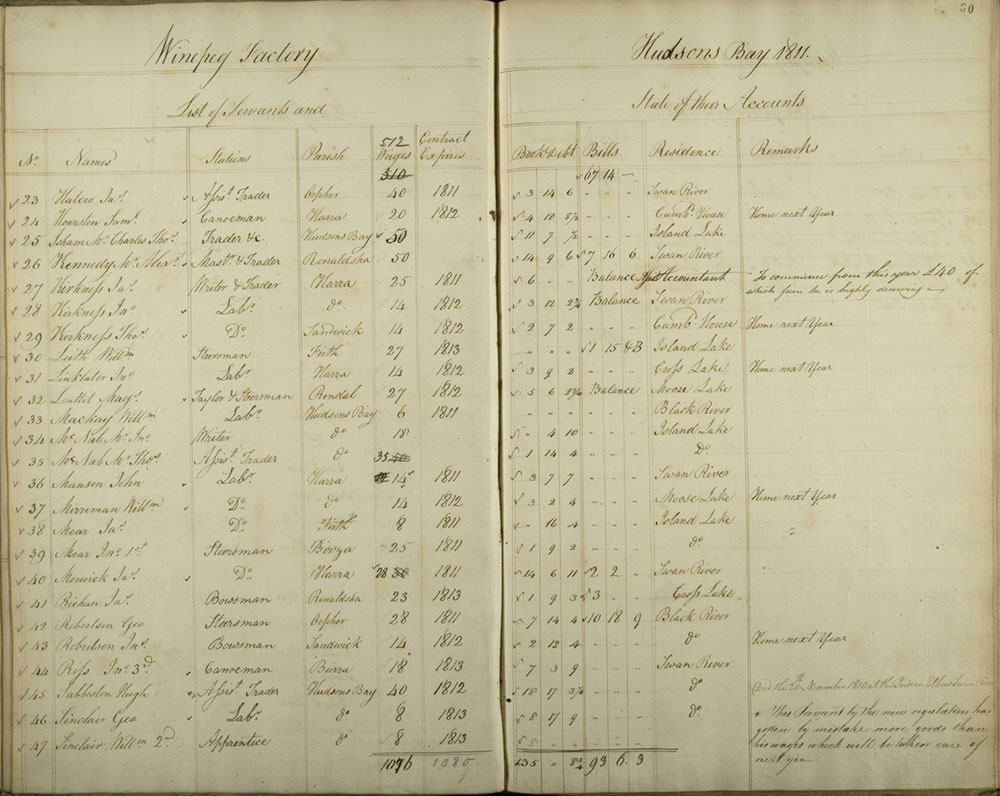 30
Winepeg Factory Hudsons Bay 1811.
List of Servants and State of their Accounts
No. Names Stations Parish 512 Wages Contract Expires Books Debt Bills Residence Remarks
510 67 14 —
23 Halcro Jas. Assist. Trader Orpher 40 1811 3 14 6 Swan River
24 Hourston Jams. Canoeman Harra 20 1812 4 10 8½ Cumbd. House Home next Year
25 Isham Mr. Charles Thos. Trader &c. Hudsons Bay 50 11 7 ½ Island Lake
26 Kennedy Mr. Alexr. Mastr. & Trader Renaldsha 50 14 9 6 7 16 6 Swan River
27 Kirkness Jas. Writer & Trader Harra 25 1811 6 Balance Accountant To commence from this year £40 of which sum he is highly deserving —
28 Kirkness Jno. Labr. do 14 1812 3 12 2¾ Balance Swan River
29 Kirkness Thos. Do. Sandwick 14 1812 2 7 2 Cumbd. House Home next Year
30 Leith Willm Steersman Firth 27 1813 1 15 &B Island Lake
31 Linklater Jno. Labr. Harra 14 1812 3 9 2 Cross Lake Home next Year
32 Louttet Mags. Taylor & Steersman Rendal 27 1812 5 6 2¾ Balance Moose Lake
33 Mackay Willm Labr. Hudsons Bay 6 1811 Black River
34 Mc.Nab Mr. Jno. Writer do 18 4 10 Island Lake
35 Mc.Nab Mr. Thos. Assist. Trader do 35 40 1 14 4 Do.
36 Manson John Labr. Harra 14 1811 3 7 7 Swan River
37 Merriman Willm Do. do 14 1812 3 2 4 Moose Lake Home next Year
38 Moar Jas. Do. Firth 8 1811 16 4 Island Lake
39 Moar Jno. 1st. Steersman 25 1811 1 9 2 do
40 Morwick Jas. Do. Harra 28 30 1811 14 6 11 2 2 Swan River
41 Richan Jas. Bowsman Renaldsha 23 1813 1 9 3 3 Cross Lake
42 Robertson Geo Steersman Orpher 28 1811 7 14 4 10 18 9 Black River
43 Robertson Jno. Bowsman Sandwick 14 1812 2 12 4 do Home next Year
44 Ross Jno. 3rd. Canoeman Burra 18 1813 7 3 9 Swan River
45 Sabbeston Hugh Assist. Trader Hudsons Bay 40 1812 18 17 3¼ do Died the 20th November 1810 at the Indian
46 Sinclair Geo Labr. do 8 1813 8 17 9 do * This Servant by the new regulation has
47 Sinclair Willm 2d Apprentice do 8 1813 8 gotten by mistake more goods than
his wages which will be taken care of
1076 1080 135 „ 8¾ 93 6. 3 next year